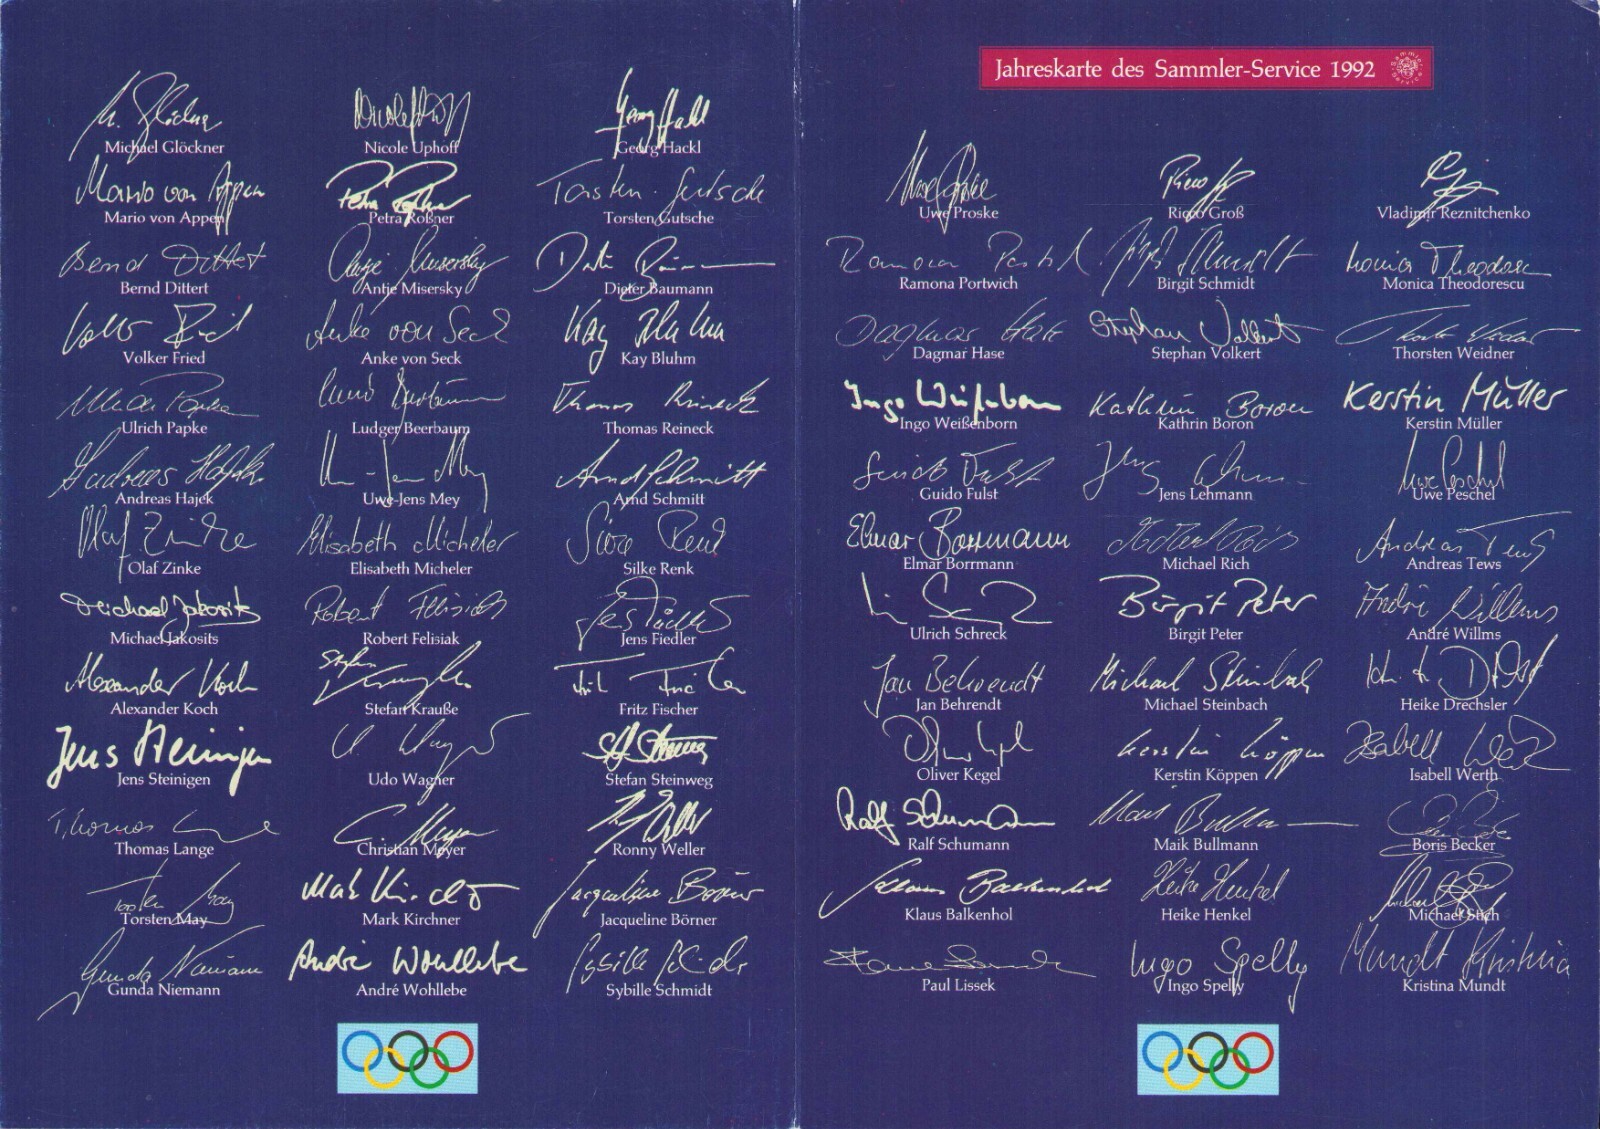 Michael Glöckner Nicole Uphoff Georg Hackl
Mario von Appen Petra Roßner Torsten Gutsche
Bernd Dittert Antje Misersky Dieter Baumann
Volker Fried Anke von Seck Kay Bluhm
Ulrich Papke Ludger Beerbaum Thomas Reineck
Andreas Hajek Uwe-Jens Mey Arnd Schmitt
Olaf Zinke Elisabeth Micheler Silke Renk
Michael Jakosits Robert Felisiak Jens Fiedler
Alexander Koch Stefan Krauße Fritz Fischer
Jens Steinigen Udo Wagner Stefan Steinweg
Thomas Lange Christian Meyer Ronny Weller
Torsten May Mark Kirchner Jacqueline Börner
Gunda Niemann André Wohllebe Sybille Schmidt
Jahreskarte des Sammler-Service 1992
Uwe Proske Ricco Groß Vladimir Reznitchenko
Ramona Portwich Birgit Schmidt Monica Theodorescu
Dagmar Hase Stephan Volkert Thorsten Weidner
Ingo Weißenborn Kathrin Boron Kerstin Müller
Guido Fulst Jens Lehmann Uwe Peschel
Elmar Borrmann Michael Rich Andreas Tews
Ulrich Schreck Birgit Peter André Willms
Jan Behrendt Michael Steinbach Heike Drechsler
Oliver Kegel Kerstin Köppen Isabell Werth
Ralf Schumann Maik Bullmann Boris Becker
Klaus Balkenhol Heike Henkel Michael Stich
Paul Lissek Ingo Spelly Kristina Mundt